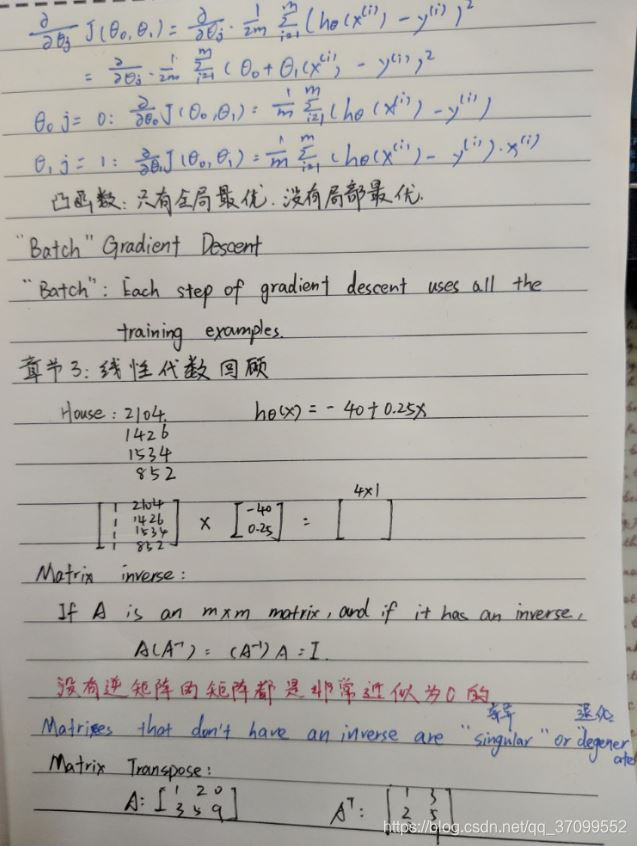 ∂/∂θj J(θ0,θ1) = ∂/∂θj · 1/2m Σ(i=1→m) (hθ(x^(i)) - y^(i))^2
= ∂/∂θj · 1/2m Σ(i=1→m) (θ0 + θ1(x^(i) - y^(i))^2
θ0 j = 0: ∂/∂θ0 J(θ0,θ1) = 1/m Σ(i=1→m) (hθ(x^(i)) - y^(i))
θ1 j = 1: ∂/∂θ1 J(θ0,θ1) = 1/m Σ(i=1→m) (hθ(x^(i)) - y^(i)) · x^(i)
凸函数: 只有全局最优. 没有局部最优.
"Batch" Gradient Descent
"Batch": Each step of gradient descent uses all the
training examples.
章节3: 线性代数回顾
House: 2104 hθ(x) = -40+0.25x
1426
1534
852
4x1
[1 2104 -40
1 1426 × [ ] = [ ]
1 1534 0.25
1 852]
Matrix inverse:
If A is an mxm matrix, and if it has an inverse,
A(A^-1) = (A^-1)A = I.
没有逆矩阵的矩阵都是非常近似为0的
奇异 退化
Matrixes that don't have an inverse are "singular" or degener
ate
Matrix Transpose:
A: [1 2 0 A^T: [1 3
3 5 9] 2 5
https://blog.csdn.net/qq_37099552